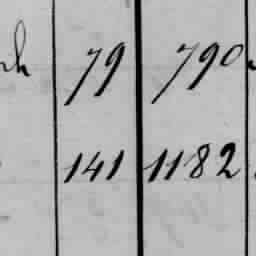 79 790
141 1182